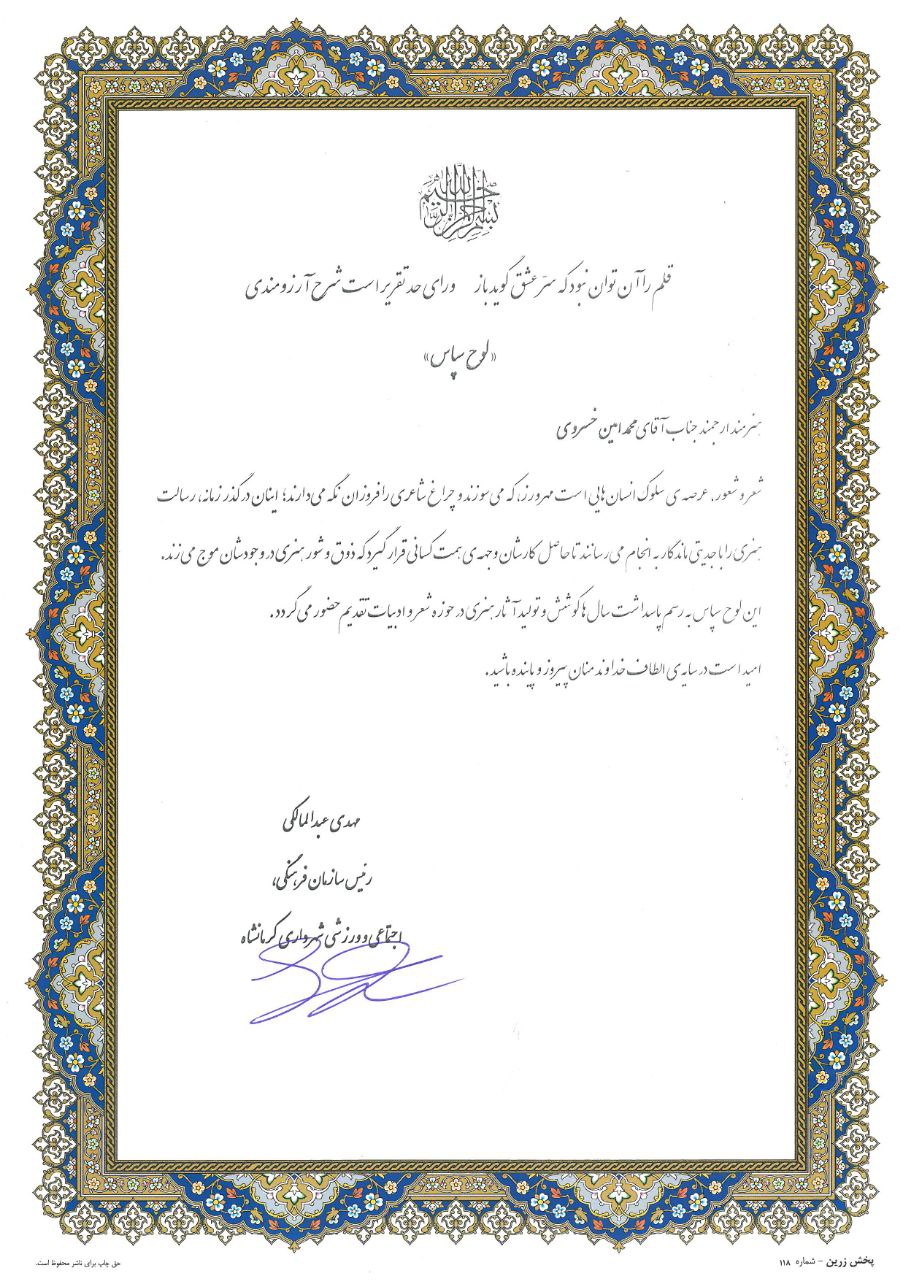 بسم الله الرحمن الرحیم
قلم را آن توان نبود که سرّ عشق گوید باز ورای حد تقریر است شرح آرزومندی
«لوح سپاس»
هنرمند ارجمند جناب آقای محمد امین خسروی
شعر و شعور، عرصه‌ی سلوک انسان‌هایی است مهرورز، که می‌سوزند و چراغ شاعری را فروزان نگه می‌دارند؛ اینان در گذر زمانه، رسالت
هنری را با جدیتی ماندگار به انجام می‌رسانند تا حاصل کارشان وجهه‌ی همت کسانی قرار گیرد که ذوق و شور هنری در وجودشان موج می‌زند.
این لوح سپاس به رسم پاسداشت سال‌ها کوشش و تولید آثار هنری در حوزه شعر و ادبیات تقدیم حضور می‌گردد.
امید است در سایه‌ی الطاف خداوند منان پیروز و پاینده باشید.
مهدی عبدالمالکی
رئیس سازمان فرهنگی،
اجتماعی و ورزشی شهرداری کرمانشاه
پخش زرین - شماره ۱۱۸
حق چاپ برای ناشر محفوظ است.